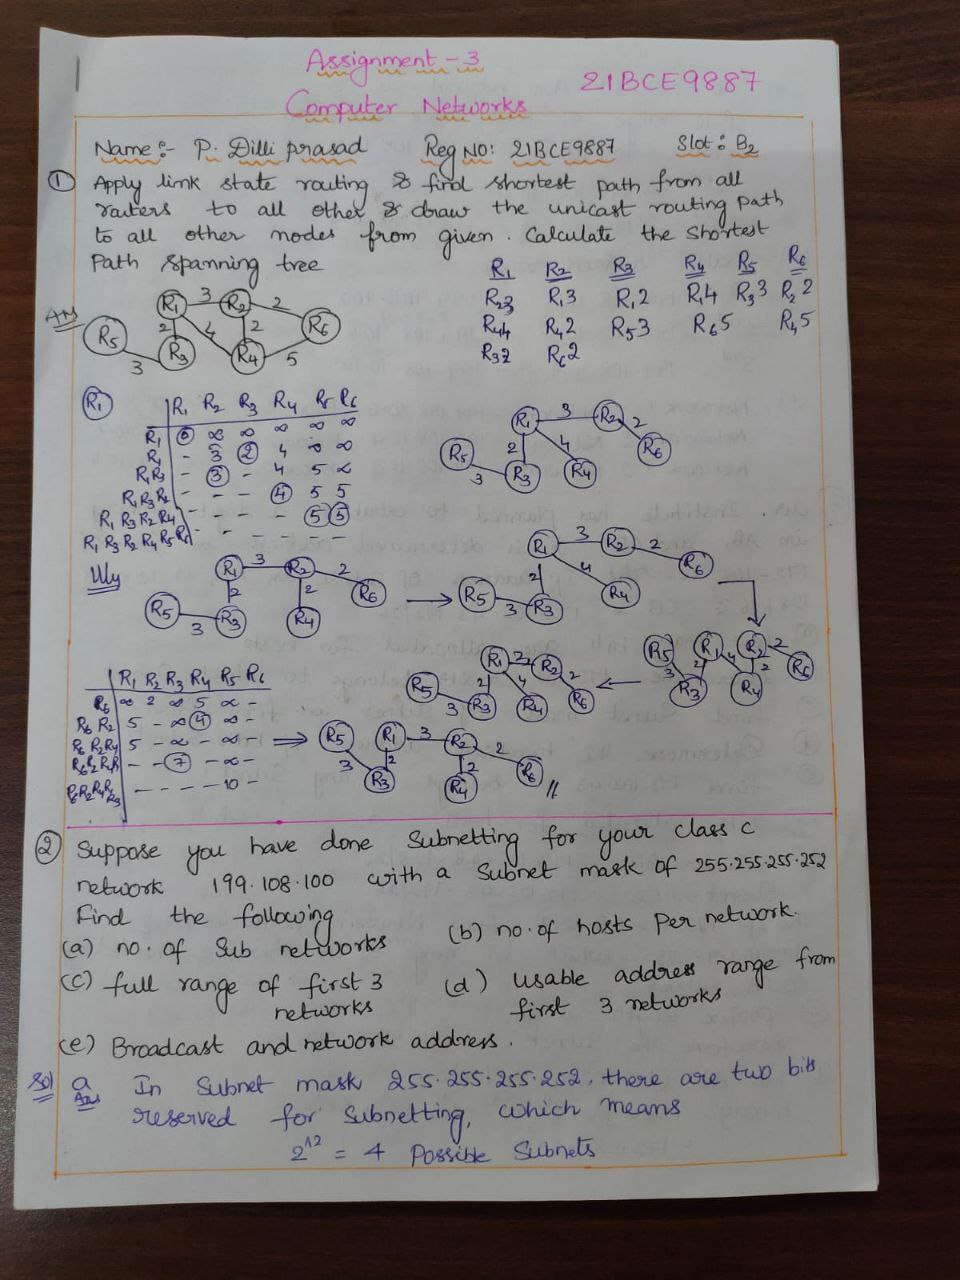 Assignment - 3
21BCE9887
Computer Networks
Name :- P. Dilli prasad Reg NO: 21BCE9887 Slot: B2
① Apply link state routing & find shortest path from all
routers to all other & draw the unicast routing path
to all other nodes from given. Calculate the shortest
Path spanning tree
R1 R2 R3 R4 R5 R6
R23 R13 R12 R14 R33 R22
R44 R42 R53 R65 R45
R32 R62
Ans
R1 3 R2 2 R6
R5 3 R3 2 4 2 R4 5
R1
R1 R2 R3 R4 R5 R6
R1 0 ∞ ∞ ∞ ∞ ∞
R1 - 3 2 4 ∞ ∞
R1R3 - 3 - 4 5 ∞
R1R3R2 - - - 4 5 5
R1 R3 R2 R4 - - - - 5 5
R1 R3 R2 R4 R5 R6 - - - -
R1 3 R2 2 R6
R5 3 R3 2 4 R4
Illy
R1 3 R2 2 R6
R5 3 R3 2 2 R4
R1 3 R2 2 R6
R5 3 R3 2 4 R4
R5 R1 R2 2 R6
3 R3 2 4 2 R4
R1 R2 2 R6
R5 3 R3 2 4 R4
R1 R2 R3 R4 R5 R6
R6 ∞ 2 ∞ 5 ∝ -
R6 R2 5 - ∞ 4 ∞ -
R6 R2R4 5 - ∞ - ∞ -
- - 7 - ∞ -
- - - - 10 -
R5 R1 3 R2 2 R6
3 R3 2 2 R4
② Suppose you have done Subnetting for your class c
network 199.108.100 with a Subnet mask of 255.255.255.252
Find the following
(a) no. of Sub networks (b) no. of hosts Per network.
(c) full range of first 3 networks
(d) usable address range from first 3 networks
(e) Broadcast and network address.
Sol a Ans In Subnet mask 255.255.255.252, there are two bits
reserved for Subnetting, which means
2^12 = 4 Possible Subnets